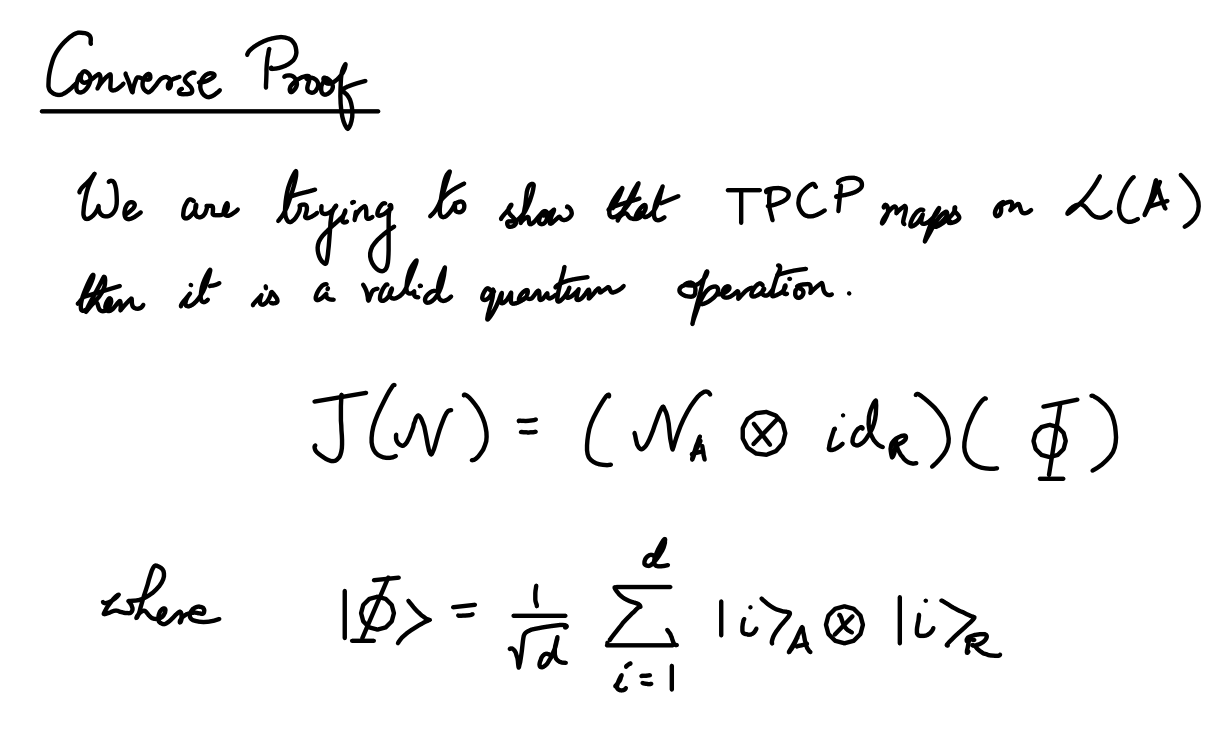 Converse Proof
We are trying to show that TPCP maps on ℒ(A)
then it is a valid quantum operation.
J(𝒩) = (𝒩_A ⊗ id_R)(Φ)
where |Φ⟩ = 1/√d ∑_{i=1}^{d} |i⟩_A ⊗ |i⟩_R